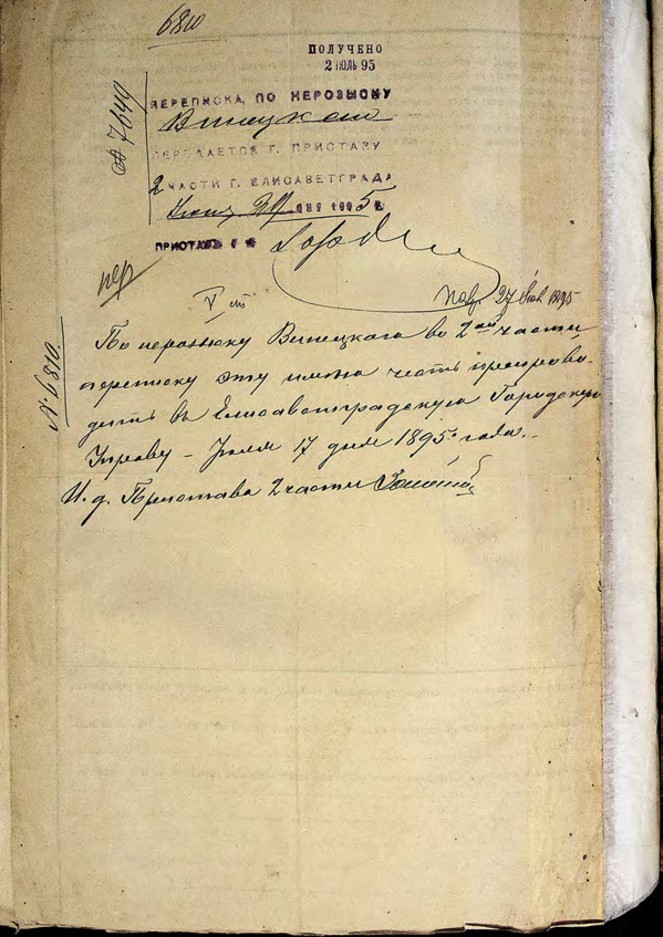 6810
ПОЛУЧЕНО
2 ІЮЛЬ 95
№ 7649
ПЕРЕПИСКА, ПО НЕРОЗЫСКУ
Винецкаго
ПЕРЕДАЕТСЯ Г. ПРИСТАВУ
2 ЧАСТИ Г. ЕЛИСАВЕТГРАДА
189 5 г
ПРИСТАВЪ
V ст
27 1895
№ 6810.
По нерозыску Винецкаго во 2ой части
переписку эту имею честь препрово-
дить въ Елисаветградскую Городскую
Управу - Іюля 17 дня 1895 года.
И. д. Пристава 2 части